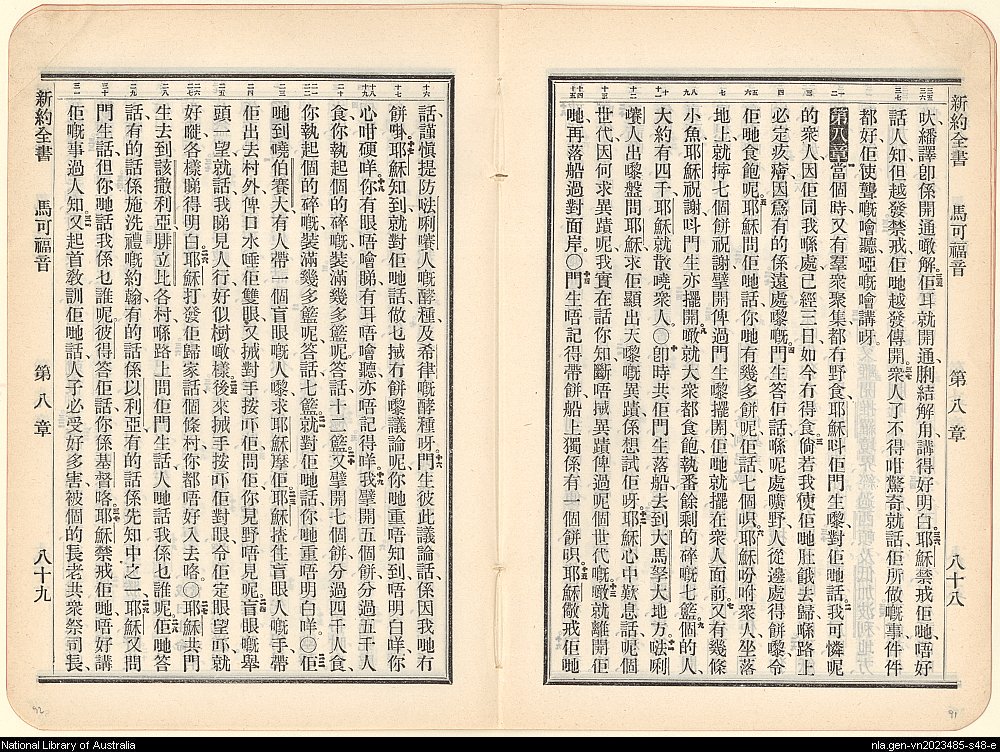 新約全書 馬可福音 第八章 八十八
吠繙譯卽係開通噉解佢耳就開通脷結解用講得好明白耶穌禁戒佢哋唔好
話人知但越發禁戒佢哋越發傳開衆人了不得咁驚奇就話佢所做嘅事件件
都好佢使聾嘅噲聽啞嘅噲講呀
第八章當個時又有羣衆聚集都冇野食耶穌呌佢門生嚟對佢哋話我可憐呢
的衆人因佢同我喺處已經三日如今冇得食倘若我使佢哋肚餓去歸喺路上
必定攰因爲有的係遠處嚟嘅門生答佢話喺呢處曠野人從邊處得餅嚟令
佢哋食飽呢耶穌問佢哋話你哋有幾多餅呢佢話七個唄耶穌吩咐衆人坐落
地上就擰七個餅祝謝擘開俾過門生嚟擺開佢哋就擺在衆人面前又有幾條
小魚耶穌祝謝呌門生亦擺開噉就大衆都食飽執番餘剩的碎七籃個的人
大約有四千耶穌就散嘵衆人〇卽時共佢門生落船去到大馬孥大地方𠵽唎
人出嚟盤問耶穌求佢顯出天嚟嘅異蹟係想試佢呀耶穌心中歎息話呢個
世代因何求異蹟呢我實在話你知斷唔異蹟俾過呢個世代嘅噉就離開佢
哋再落船過對面岸〇門生唔記得帶餅船上獨係有一個餅唄耶穌儆戒佢哋
話謹愼提防𠵽唎人嘅酵種及希律嘅酵種呀門生彼此議論話係因我哋冇
餅啩耶穌知到就對佢哋話做乜冇餅嚟議論呢你哋重唔知到唔明白咩你
心咁硬咩你有眼唔噲睇有耳唔噲聽亦唔記得咩我擘開五個餅分過五千人
食你執起個的碎嘅裝滿幾多籃呢答話十二籃又擘開七個餅分過四千人食
你執起個的碎嘅裝滿幾多籃呢答話七籃就對佢哋話你哋重唔明白咩〇佢
哋到嘵伯賽大有人帶一個盲眼嘅人嚟求耶穌摩佢耶穌揸住盲眼人嘅手帶
佢出去村外俾口水唾佢雙眼又對手按吓佢問佢你見野唔見呢盲眼嘅舉
頭一望就話我睇見人行好似樹噉樣後來手按吓佢對眼令佢定眼望吓就
好嘵各樣睇得明白耶穌打發佢歸家話個條村你都唔好入去咯〇耶穌共門
生去到該撒利亞腓立比各村喺路上問佢門生話人哋話我係乜誰呢佢哋答
話有的話係施洗禮嘅約翰有的話係以利亞有的話係先知中之一耶穌又問
門生話但你哋話我係乜誰呢彼得答佢話你係基督咯耶穌禁戒佢哋唔好講
佢嘅事過人知又起首敎訓佢哋話人子必受好多害被個的長老共衆祭司長
新約全書 馬可福音 第八章 八十九
92
91
National Library of Australia
nla.gen-vn2023485-s48-e